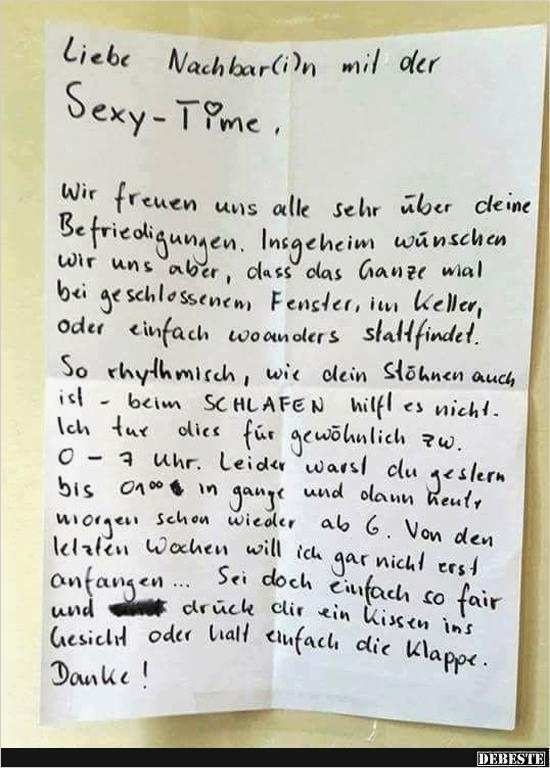 Liebe Nachbar(i)n mit der
Sexy-Time,
Wir freuen uns alle sehr über deine
Befriedigungen. Insgeheim wünschen
wir uns aber, dass das Ganze mal
bei geschlossenem Fenster, im Keller,
oder einfach woanders stattfindet.
So rhythmisch, wie dein Stöhnen auch
ist - beim SCHLAFEN hilft es nicht.
Ich tue dies für gewöhnlich zw.
0 - 7 Uhr. Leider warst du gestern
bis 01⁰⁰ in gange und dann heute
morgen schon wieder ab 6. Von den
letzten Wochen will ich gar nicht erst
anfangen... Sei doch einfach so fair
und drücke dir ein Kissen ins
Gesicht oder halt einfach die Klappe.
Danke!
DEBESTE